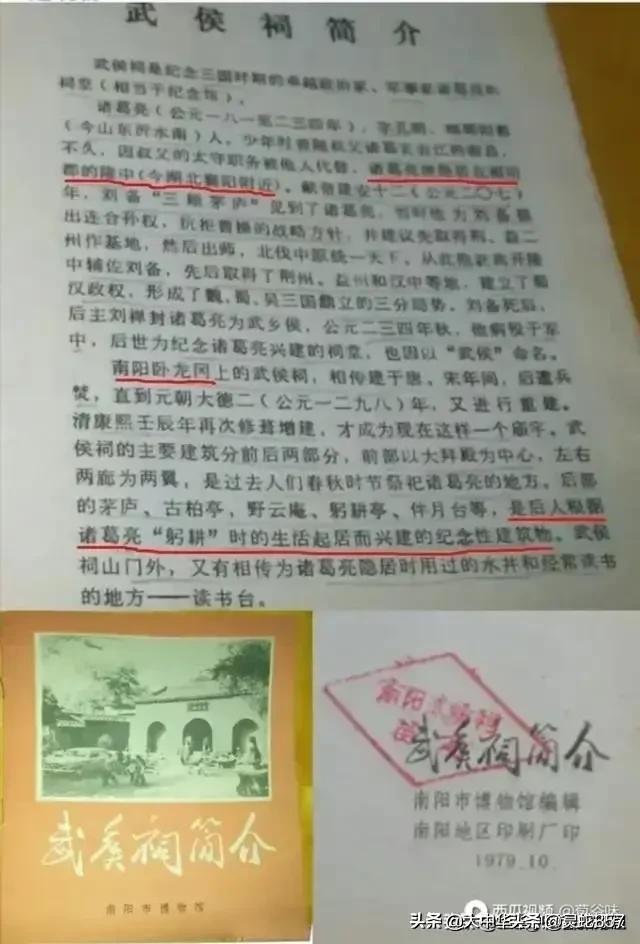 武侯祠简介
武侯祠是纪念三国时期的卓越政治家、军事家诸葛亮的
祠堂(相当于纪念馆)。
诸葛亮(公元一八一至二三四年),字孔明,琅琊阳都
(今山东沂水南)人。少年时曾随叔父诸葛玄去江西南昌,
不久,因叔父的太守职务被他人代替,诸葛亮便隐居在南阳
郡的隆中(今湖北襄阳附近)。献帝建安十二(公元二〇七)
年,刘备“三顾茅庐”见到了诸葛亮,当时他为刘备提
出连合孙权,抗拒曹操的战略方针,并建议先取得荆、益二
州作基地,然后出师,北伐中原统一天下。从此他就离开隆
中辅佐刘备,先后取得了荆州、益州和汉中等地,建立了蜀
汉政权,形成了魏、蜀、吴三国鼎立的三分局势。刘备死后,
后主刘禅封诸葛亮为武乡侯,公元二三四年秋,他病殁于军
中,后世为纪念诸葛亮兴建的祠堂,也因以“武侯”命名。
南阳卧龙冈上的武侯祠,相传建于唐、宋年间,后遭兵
燹,直到元朝大德二(公元一二九八)年,又进行重建。
清康熙壬辰年再次修葺增建,才成为现在这样一个庙宇。武
侯祠的主要建筑分前后两部分,前部以大拜殿为中心,左右
两廊为两翼,是过去人们春秋时节祭祀诸葛亮的地方。后部
的茅庐、古柏亭,野云庵、躬耕亭、伴月台等,是后人根据
诸葛亮“躬耕”时的生活起居而兴建的纪念性建筑物。武侯
祠山门外,又有相传为诸葛亮隐居时用过的水井和经常读书
的地方——读书台。
武侯祠简介
南阳市博物馆
南阳武侯祠
武侯祠简介
南阳市博物馆编辑
南阳地区印刷厂印
1979.10.
西瓜视频 @荀谷味